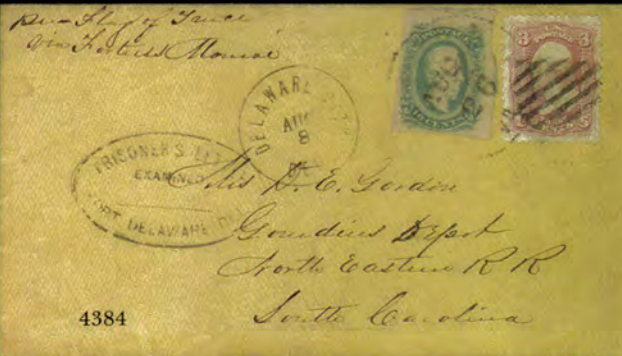 per Flag of Truce
via Fortress Monroe
POSTAGE
3 3
DELAWARE CITY
AUG
8
DEL
AUG
26
PRISONER'S LETTER
EXAMINED
FORT DELAWARE DEL
Mis D. E. Gordon
Gourdins Depot
North Eastern R R
South Carolina
4384